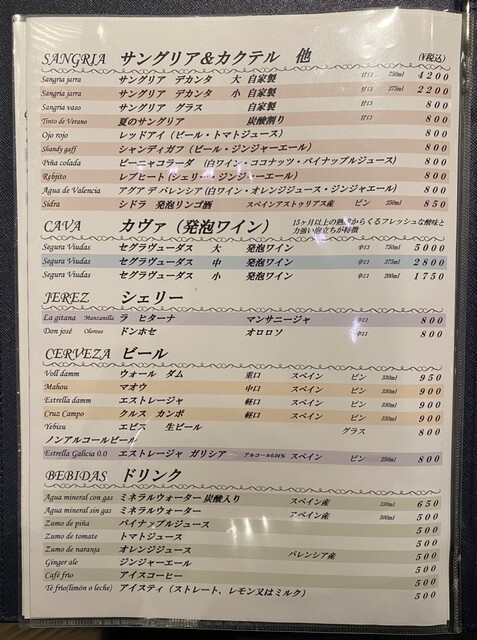 SANGRIA サングリア&カクテル 他 (¥税込)
Sangria jarra サングリア デカンタ 大 自家製 甘口 750ml 4200
Sangria jarra サングリア デカンタ 小 自家製 甘口 375ml 2200
Sangria vaso サングリア グラス 自家製 800
Tinto de Verano 夏のサングリア 炭酸割り 甘口 800
Ojo rojo レッドアイ(ビール・トマトジュース) 800
Shandy gaff シャンディガフ(ビール・ジンジャーエール) 800
Piña colada ピーニャコラーダ (白ワイン・ココナッツ・パイナップルジュース) 800
Rebjito レブヒート(シェリー・ジンジャーエール) 800
Agua de Valencia アグア デ バレンシア(白ワイン・オレンジジュース・ジンジャエール) 800
Sidra シドラ 発泡リンゴ酒 スペインアストゥリアス産 ビン 250ml 850
CAVA カヴァ(発泡ワイン) 15ヶ月以上の熟成からくるフレッシュな酸味と
力強い泡立ちが特徴
Segura Viudas セグラヴューダス 大 発泡ワイン 辛口 750ml 5000
Segura Viudas セグラヴューダス 中 発泡ワイン 辛口 375ml 2800
Segura Viudas セグラヴューダス 小 発泡ワイン 辛口 200ml 1750
JEREZ シェリー
La gitana Manzanilla ラ ヒターナ マンサニージャ 辛口 800
Don josé Oloroso ドンホセ オロロソ 辛口 800
CERVEZA ビール
Voll damm ウォール ダム 重口 スペイン ビン 330ml 950
Mahou マオウ 中口 スペイン ビン 330ml 900
Estrella damm エストレージャ 軽口 スペイン ビン 330ml 900
Cruz Campo クルス カンポ 軽口 スペイン ビン 330ml 900
Yebisu エビス 生ビール グラス 800
ノンアルコールビール
Estrella Galicia 0.0 エストレージャ ガリシア アルコール0.04% スペイン ビン 250ml 800
BEBIDAS ドリンク
Agua mineral con gas ミネラルウォーター 炭酸入り スペイン産 330ml 650
Agua mineral sin gas ミネラルウォーター スペイン産 500ml 500
Zumo de piña パイナップルジュース 500
Zumo de tomate トマトジュース 500
Zumo de naranja オレンジジュース バレンシア産 500
Ginger ale ジンジャーエール 500
Café frio アイスコーヒー 500
Té frio(limón o leche) アイスティ(ストレート、レモン又はミルク) 500